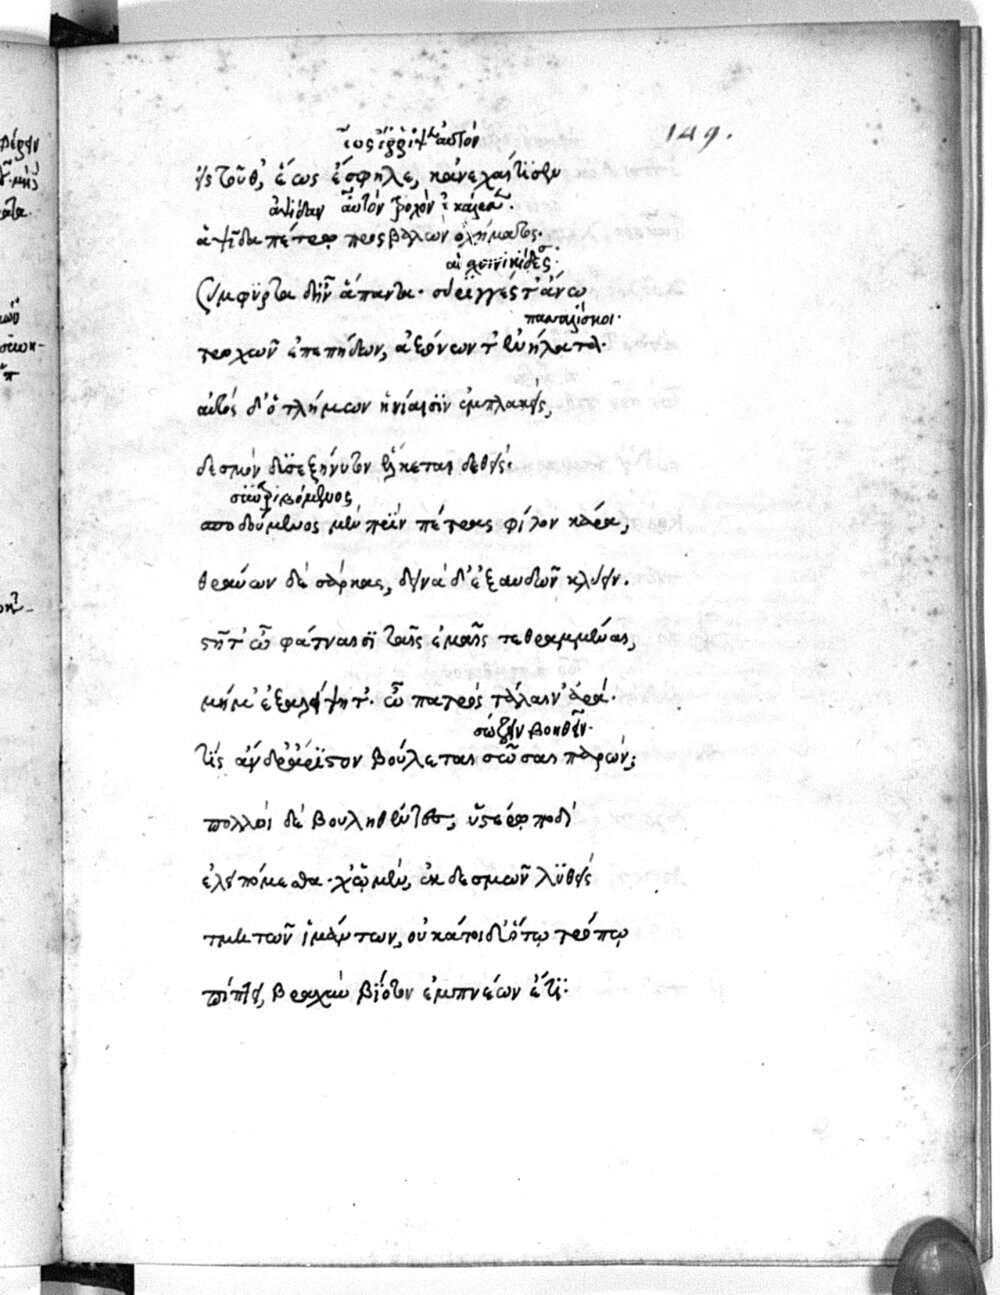 149.
ἕως ἔρριψεν αὐτὸν
εἰς τοῦθ', ἕως ἔσφηλε, κἀνεχαίτισεν
αὐτὸν τροχὸν
ἁψῖδα πέτρῳ προσβαλὼν ὀχήματος.
αἱ χοινικίδες.
σύμφυρτα δ' ἦν ἅπαντα· σύριγγές τ' ἄνω
πασσαλίσκοι·
τροχῶν ἐπεπήδων, ἀξόνων τ' ἐνήλατα.
αὐτὸς δ' ὁ τλήμων ἡνίαισιν ἐμπλακείς,
δεσμὸν δυσεξήνυτον ἕλκεται δεθείς·
συντριβόμενος
σποδούμενος μὲν πρὸς πέτραις φίλον κάρα,
θραύων δὲ σάρκας, δεινὰ δ' ἐξαυδῶν κλύειν.
στῆτ' ὦ φάτναισι ταῖς ἐμαῖς τεθραμμέναι,
μή μ' ἐξαλείψητ'. ὦ πατρὸς τάλαιν' ἀρά.
σώζειν βοηθεῖν·
τίς ἄνδρ' ἄριστον βούλεται σῶσαι παρών;
πολλοὶ δὲ βουληθέντες, ὑστέρῳ ποδὶ
ἐλειπόμεσθα· χὠ μὲν, ἐκ δεσμῶν λυθεὶς
τμητῶν ἱμάντων, οὐ κάτοιδ' ὅτῳ τρόπῳ
πίπτει, βραχὺν βίοτον ἐμπνέων ἔτι·